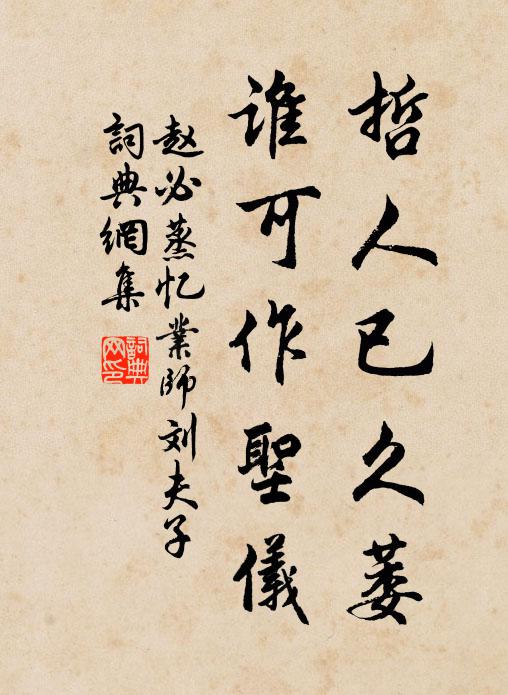 哲人已久萎
谁可作聖儀
赵必蒸忆業師刘夫子
詞典網集
詞典网印